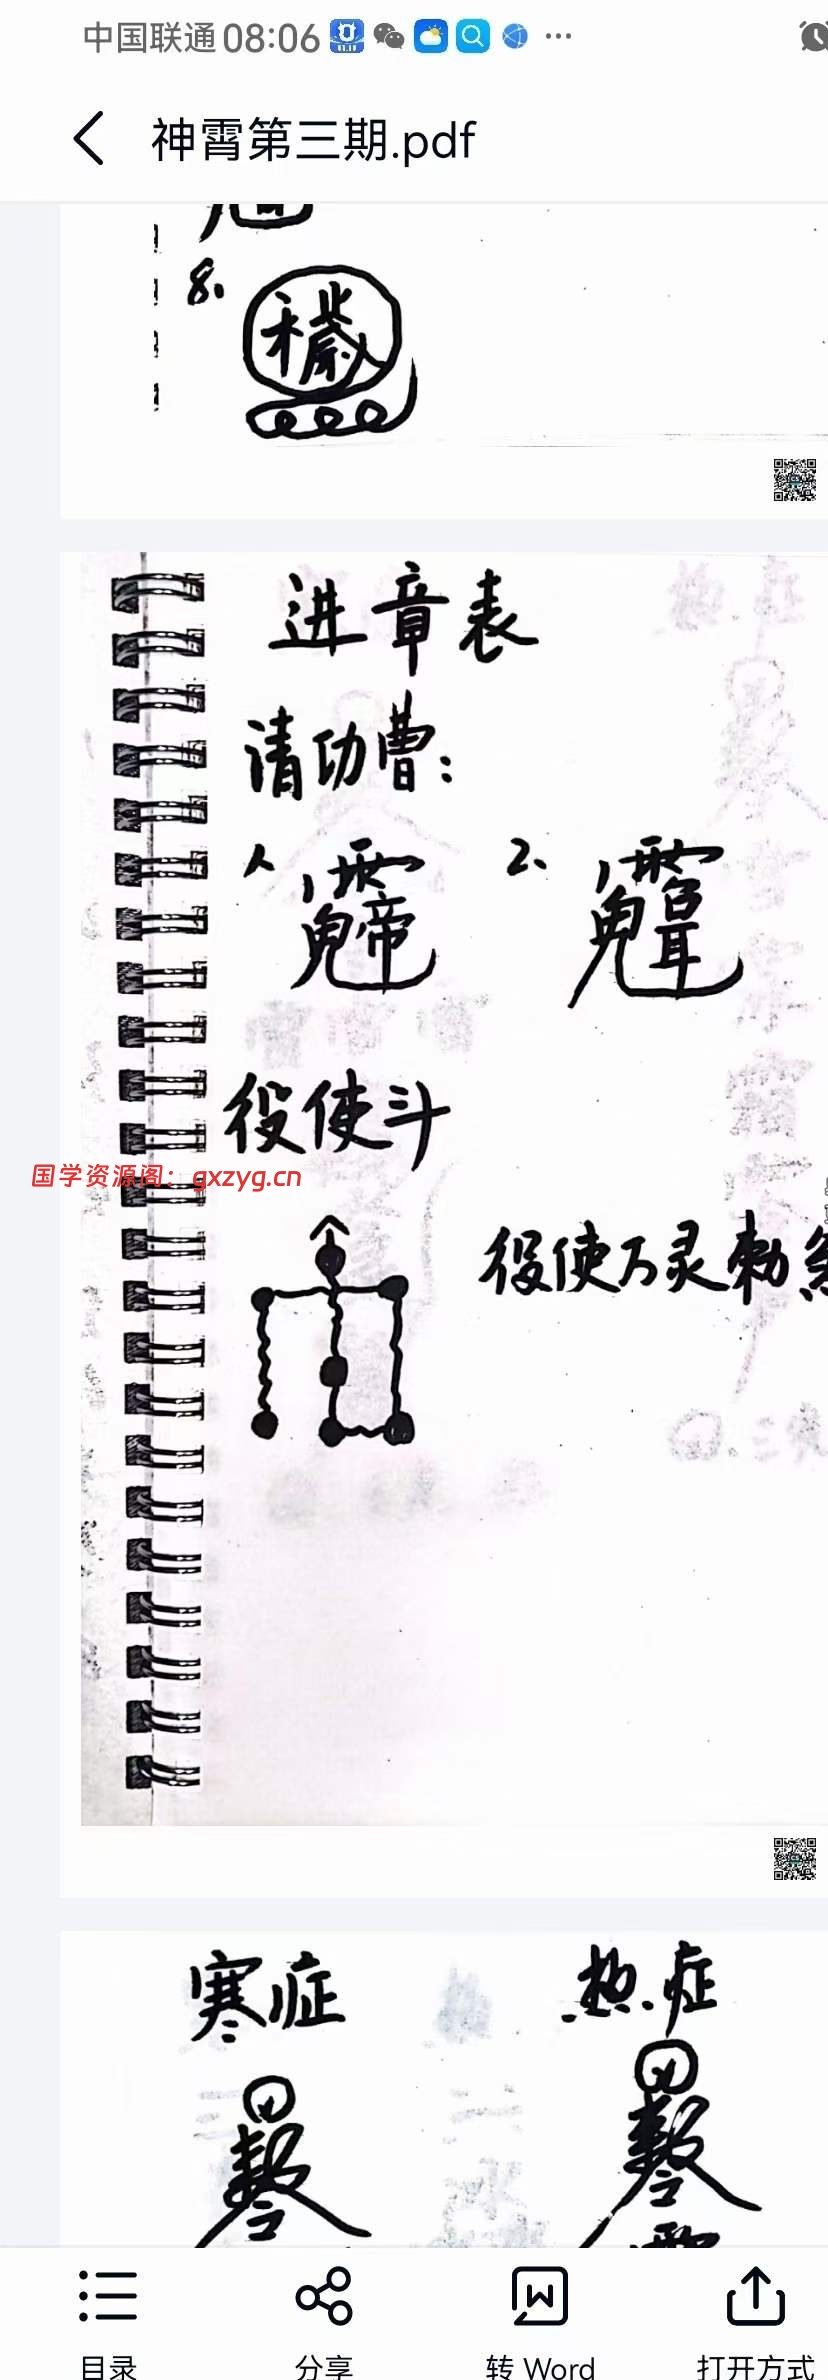 中国联通 08:06 ···
神霄第三期.pdf
8、
穢
进章表
请功曹：
1、 2、
役使斗
国学资源阁：gxzyg.cn
役使万灵勅
寒症 热症
目录 分享 转 Word 打开方式